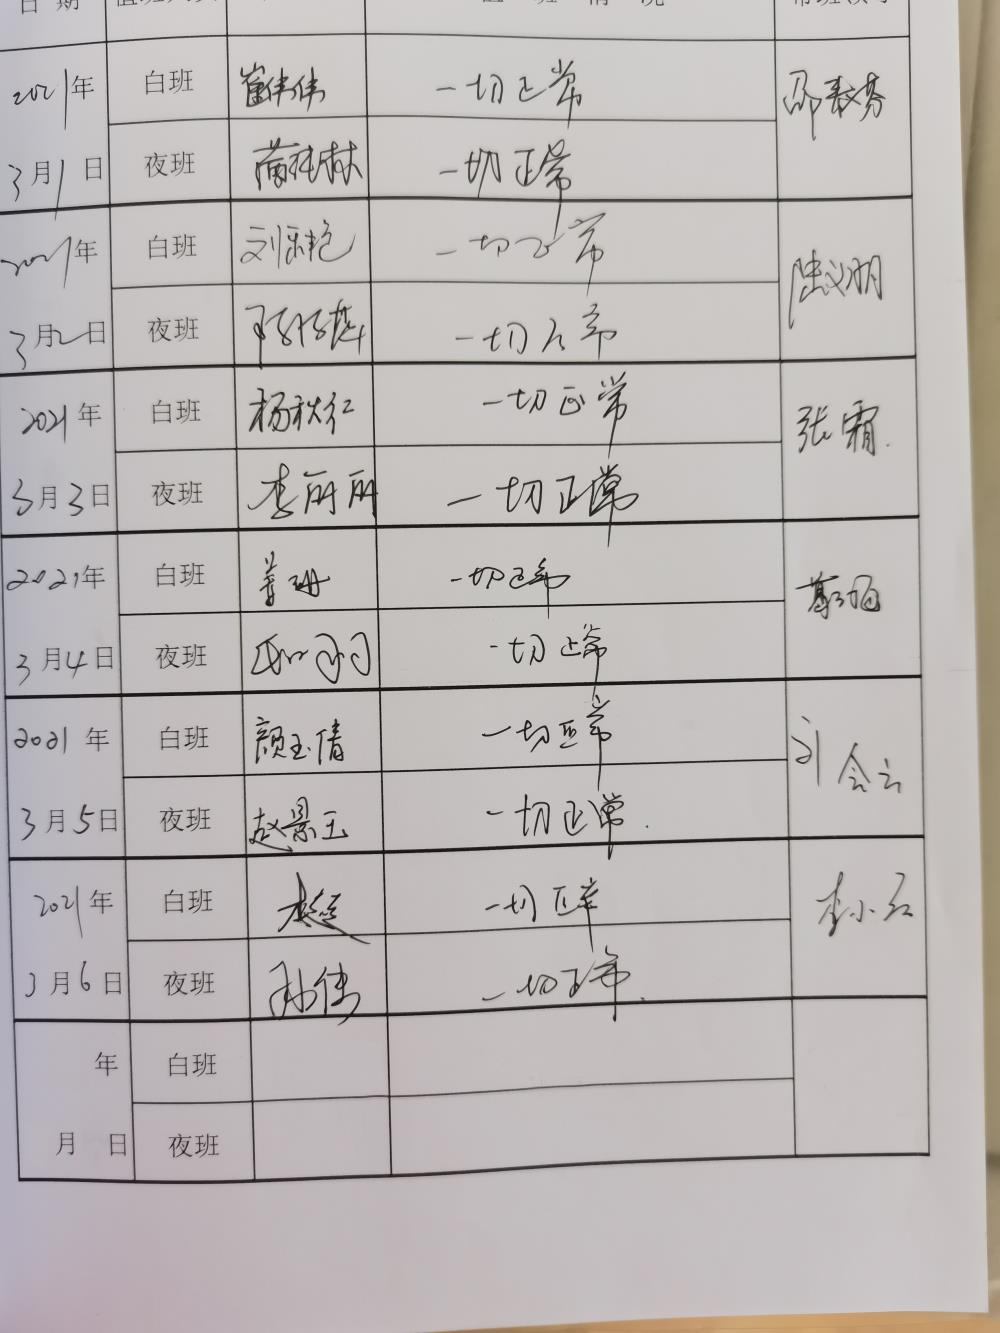 日期 值班人员 值班情况 带班领导
2021年 白班 崔伟伟 一切正常
3月1日 夜班 一切正常
2021年 白班 一切正常 陆义明
3月2日 夜班 一切正常
2021年 白班 杨秋红 一切正常 张霜
3月3日 夜班 李丽丽 一切正常
2021年 白班 姜珊 一切正常
3月4日 夜班 一切正常
2021年 白班 颜玉倩 一切正常 刘会云
3月5日 夜班 赵景玉 一切正常
2021年 白班 一切正常 李小红
3月6日 夜班 孙伟 一切正常
年 白班
月 日 夜班